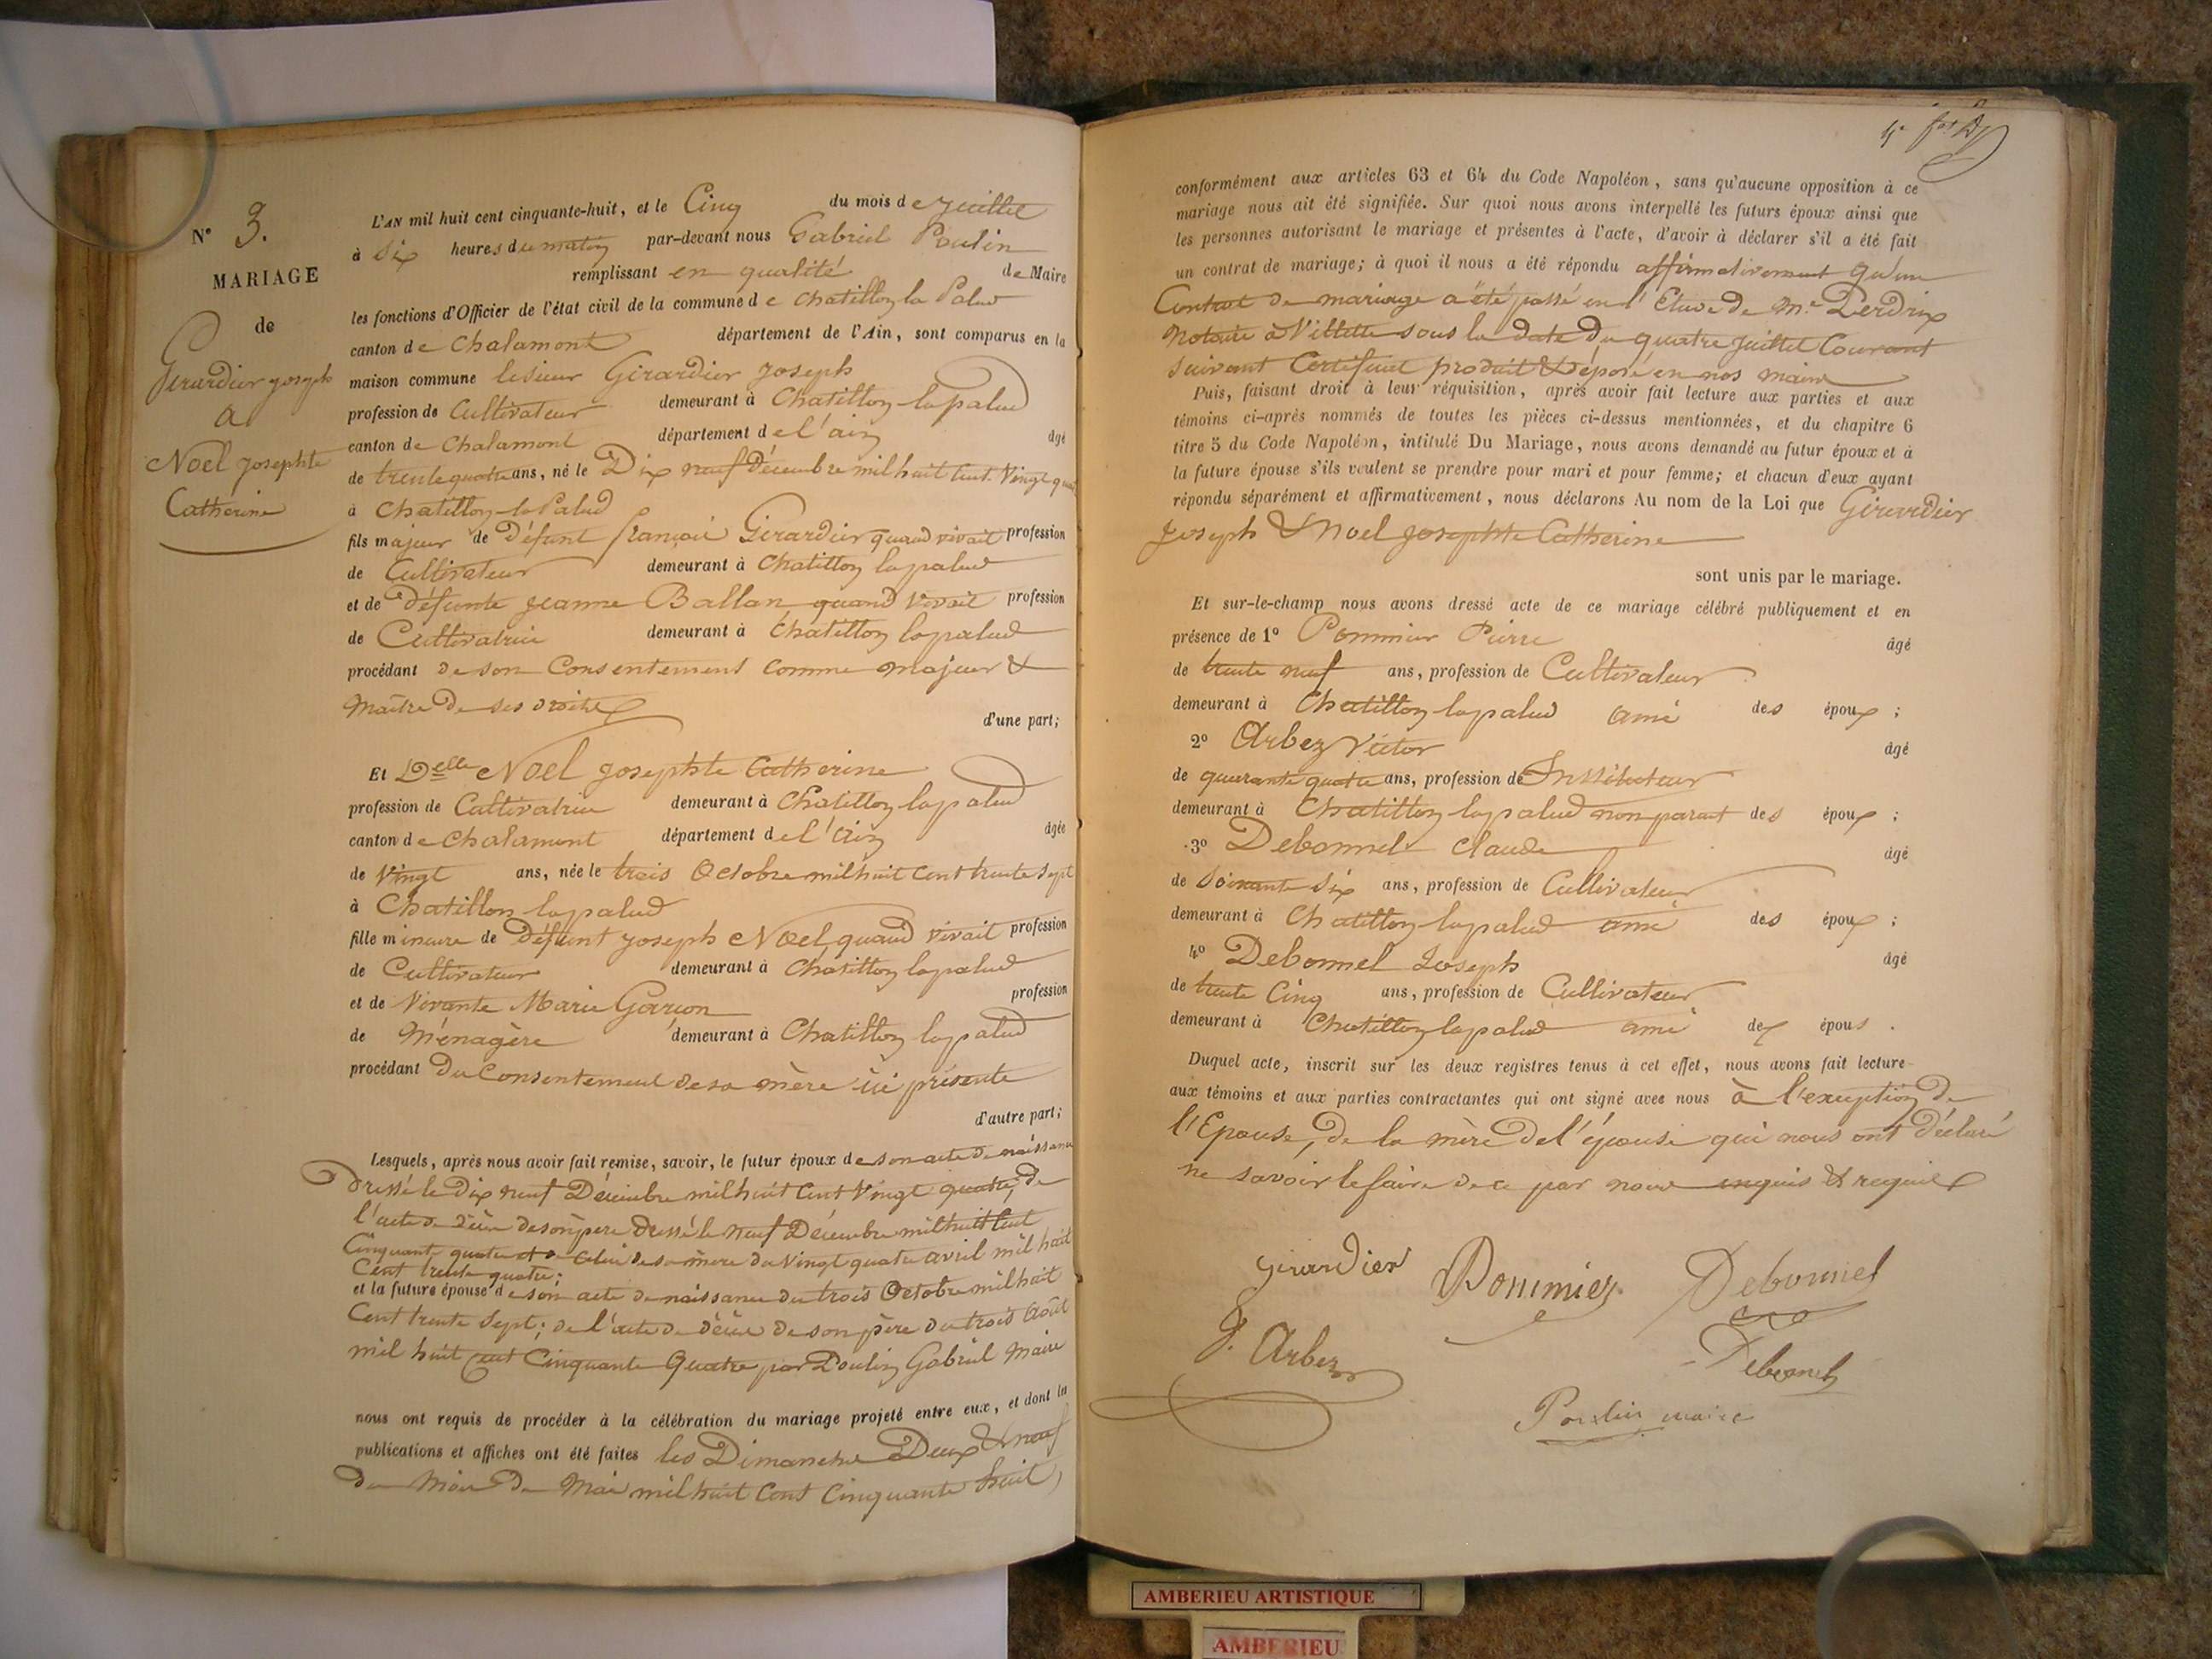 N° 3.
MARIAGE
de
Girardier Joseph
a
Noel Josephte
Catherine
L'AN mil huit cent cinquante-huit, et le Cinq du mois de Juillet
à Six heures du matin par-devant nous Gabriel Poulin
remplissant en qualité de Maire
les fonctions d'Officier de l'état civil de la commune de Chatillon la Palud
canton de Chalamont département de l'Ain, sont comparus en la
maison commune le sieur Girardier Joseph
profession de Cultivateur demeurant à Chatillon lapalud
canton de Chalamont département de l'ain âgé
de trente quatre ans, né le Dix neuf Décembre mil huit Cent Vingt quatre
à Chatillon la Palud
fils majeur de Défunt françois Girardier quand vivait profession
de Cultivateur demeurant à Chatillon lapalud
et de Défunte Jeanne Ballan quand vivait profession
de Cultivatrice demeurant à Chatillon lapalud
procédant de son Consentement Comme majeur &
Maître de ses droits
d'une part;
Et Delle Noel Josephte Catherine
profession de Cultivatrice demeurant à Chatillon lapalud
canton de Chalamont département de l'ain âgée
de Vingt ans, née le trois Octobre mil huit Cent trente Sept
à Chatillon lapalud
fille mineure de Défunt Joseph Noel quand vivait profession
de Cultivateur demeurant à Chatillon lapalud
et de Vivante Marie Garçon profession
de Ménagère demeurant à Chatillon lapalud
procédant Du Consentement de sa mère ici présente
d'autre part;
Lesquels, après nous avoir fait remise, savoir, le futur époux de son acte de naissance
Dressé le Dix neuf Décembre mil huit Cent Vingt quatre, de
l'acte de décès de son père Dressé le neuf Décembre mil huit Cent
Cinquante quatre et de Celui de sa mère du Vingt quatre avril mil huit
Cent trente quatre;
et la future épouse de son acte de naissance du trois Octobre mil huit
Cent trente Sept; de l'acte de décès de son père du trois Août
mil huit Cent Cinquante Quatre par Poulin Gabriel Maire
nous ont requis de procéder à la célébration du mariage projeté entre eux, et dont les
publications et affiches ont été faites les Dimanche Deux & neuf
du Mois De Mai mil huit Cent Cinquante huit,
conformément aux articles 63 et 64 du Code Napoléon, sans qu'aucune opposition à ce
mariage nous ait été signifiée. Sur quoi nous avons interpellé les futurs époux ainsi que
les personnes autorisant le mariage et présentes à l'acte, d'avoir à déclarer s'il a été fait
un contrat de mariage; à quoi il nous a été répondu affirmativement qu'un
Contrat de mariage a été passé en l'Etude de Me Perdrix
Notaire à Villette sous la date du quatre Juillet Courant
Suivant Certificat produit & déposé en nos mains
Puis, faisant droit à leur réquisition, après avoir fait lecture aux parties et aux
témoins ci-après nommés de toutes les pièces ci-dessus mentionnées, et du chapitre 6
titre 5 du Code Napoléon, intitulé Du Mariage, nous avons demandé au futur époux et à
la future épouse s'ils veulent se prendre pour mari et pour femme; et chacun d'eux ayant
répondu séparément et affirmativement, nous déclarons Au nom de la Loi que Girardier
Joseph & Noel Josephte Catherine
sont unis par le mariage.
Et sur-le-champ nous avons dressé acte de ce mariage célébré publiquement et en
présence de 1° Pommier Pierre âgé
de trente neuf ans, profession de Cultivateur
demeurant à Chatillon lapalud ami des époux ;
2° Arbez Victor âgé
de quarante quatre ans, profession de Instituteur
demeurant à Chatillon lapalud non parent des époux ;
3° Debonnel Claude âgé
de Soixante Six ans, profession de Cultivateur
demeurant à Chatillon lapalud ami des époux ;
4° Debonnel Joseph âgé
de trente Cinq ans, profession de Cultivateur
demeurant à Chatillon lapalud ami des épous .
Duquel acte, inscrit sur les deux registres tenus à cet effet, nous avons fait lecture
aux témoins et aux parties contractantes qui ont signé avec nous à l'exception de
l'Epouse, De la mère de l'épouse qui nous ont déclaré
ne savoir le faire de ce par nous enquis & requis
Girardier Pommier Debonnel
V. Arbez Debonnel
Poulin maire
AMBERIEU ARTISTIQUE
AMBERIEU